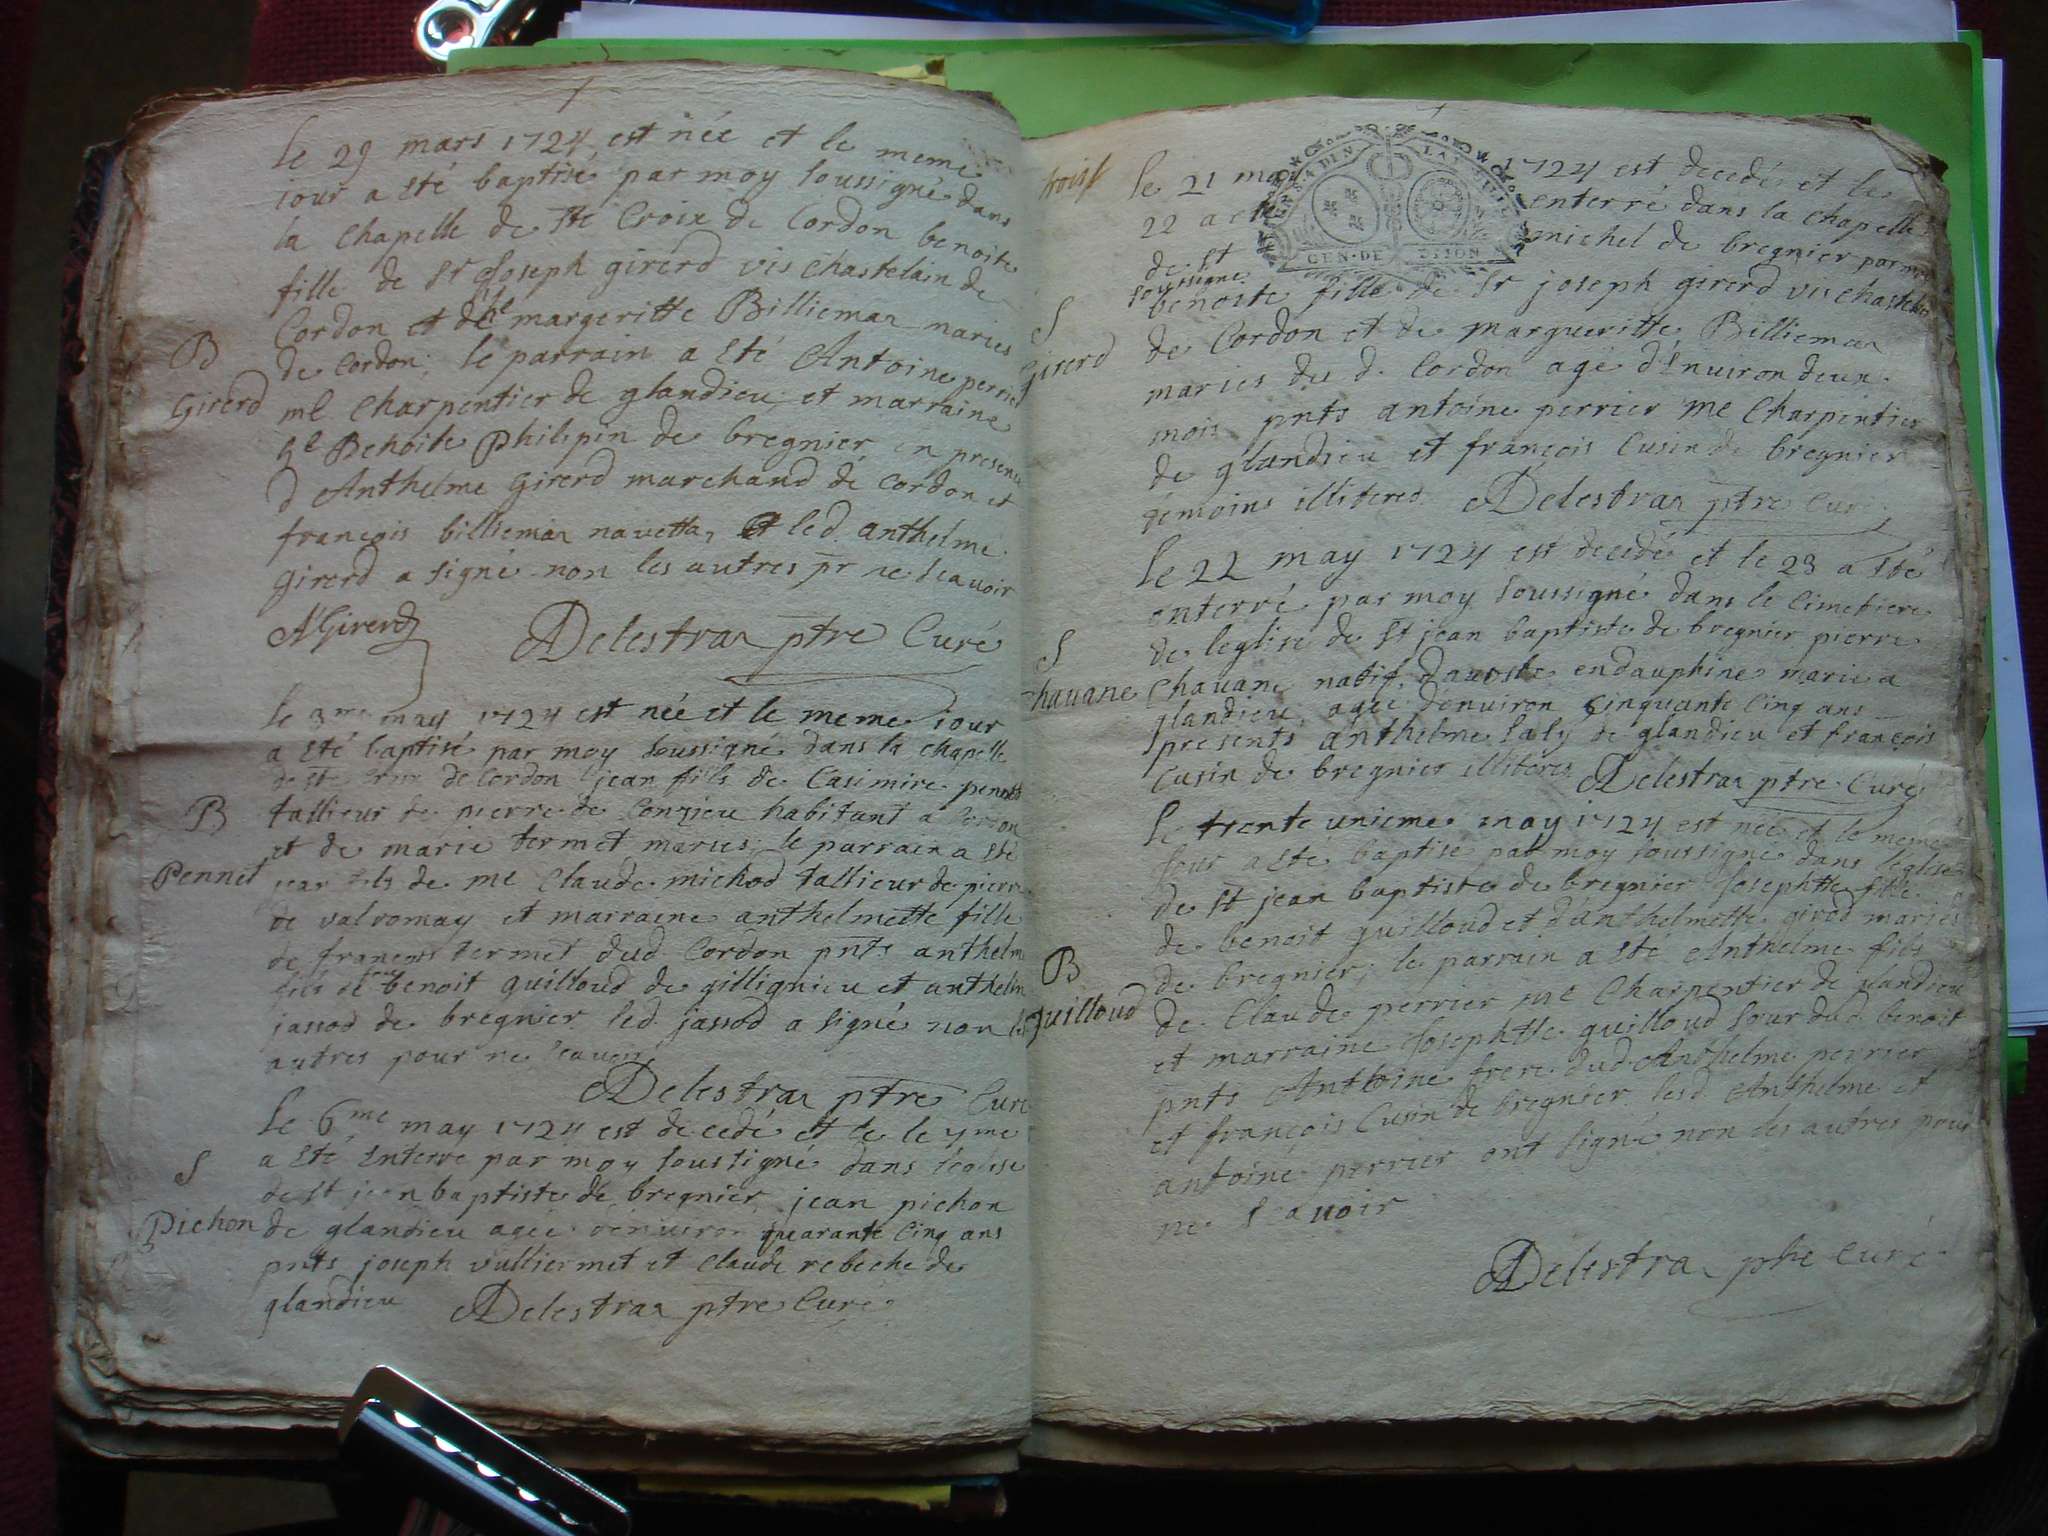 Le 29 mars 1724 est née et le meme
iour a sté baptisé par moy soussigné dans
la chapelle de Ste Croix de Cordon benoite
fille de Sr Joseph girerd vis chastelain de
Cordon et dhe margeritte Billiemaz maries
B
de Cordon; le parrain a sté Antoine perrier
Girerd
me Charpentier de glandieu; et marraine
he Benoite Philipin de bregnier en presence
d Anthelme Girerd marchand de Cordon et
françois billiemaz navetta, et led. anthelme
Girerd a signé non les autres pr ne scavoir
AGirerd
Delestraz ptre Curé
le 3me may 1724 est née et le meme iour
a sté baptisé par moy soussigné dans la chapelle
de Ste Croix de Cordon jean fils de Casimire pennet
B
tallieur de pierre de Conzieu habitant a Cordon
et de marie termet maries; le parrain a sté
Pennet
jean fils de me Claude michod tallieur de pierre
de valromay et marraine anthelmette fille
de françois termet dud. Cordon pnts anthelme
fils de benoit guilloud de gillignieu et anthelme
jassod de bregnier led. jassod a signé non les
autres pour ne scavoir
Delestraz ptre Curé
Le 6me may 1724 est decedé et le 7me
S
a sté enterré par moy soussigné dans leglise
de St jean baptiste de bregnier jean pichon
Pichon
de glandieu agée denuiron quarante Cinq ans
pnts joseph vulliermet et Claude rebeche de
glandieu
Delestraz ptre Curé
trois
le 21 may 1724 est decedée et le
22 a été enterré dans la chapelle
de St michel de bregnier par moy
soussigné
S
benoite fille de Sr joseph girerd vis chastelain
Girerd
de Cordon et de margueritte Billiemaz
maries du d. Cordon age d'enuiron deun
mois pnts antoine perrier me Charpentier
de glandieu et françois Cusin de bregnier
témoins illiteres
Delestraz ptre Curé
Le 22 may 1724 est decedé et le 23 a sté
enterré par moy soussigné dans le Cimetiere
S
de leglise de St jean baptiste de bregnier pierre
Chauane
Chauane natif daoste en dauphine marie a
glandieu, agée denuiron Cinquante Cinq ans
presents anthelme laly de glandieu et françois
Cusin de bregnier illiteres
Delestraz ptre Curé
Le trente unieme may 1724 est née et le meme
Jour a sté baptisé par moy soussigné dans leglise
de St jean baptiste de bregnier Josephtte fille
de benoit guilloud et d'anthelmette girod maries
B
de bregnier; le parrain a sté Anthelme fils
Guilloud
de Claude perrier me Charpentier de glandieu
et marraine Josephtte guilloud sour dud. benoit
pnts Anthoine frere dud Anthelme perrier
et françois Cusin de bregnier lesd Anthelme et
antoine perrier ont signé non les autres pour
ne scavoir
Delestraz ptre Curé
GEN·DE DIJON